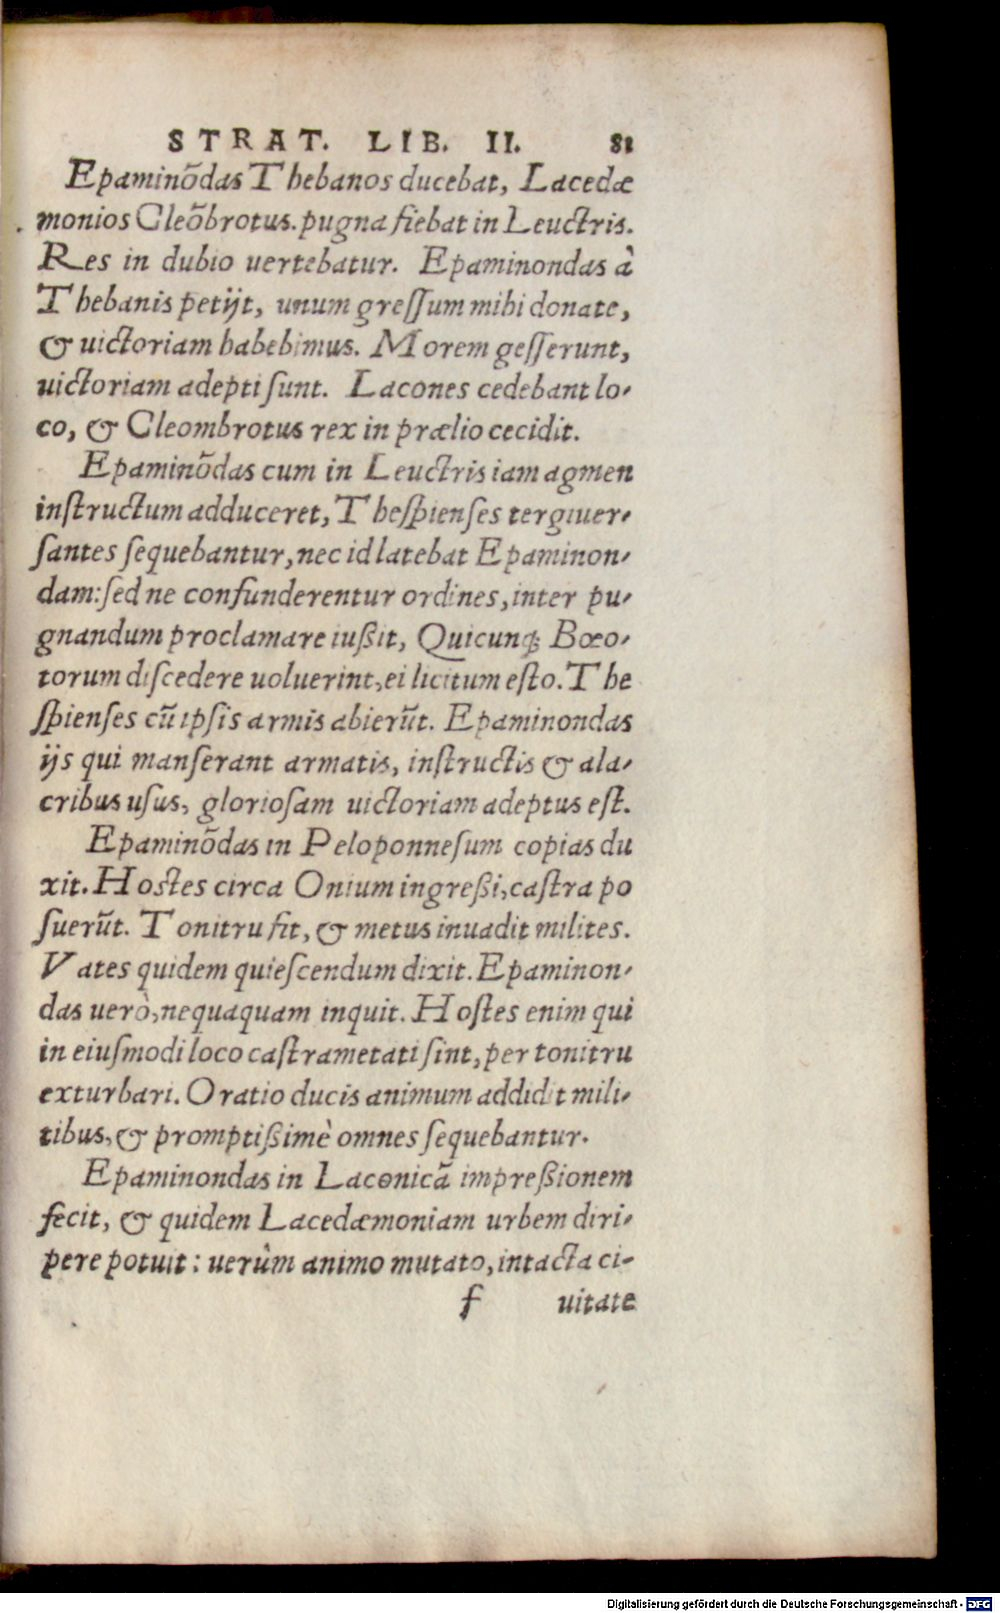 STRAT. LIB. II. 81
Epaminõdas Thebanos ducebat, Lacedæ
monios Cleõbrotus. pugna fiebat in Leuctris.
Res in dubio uertebatur. Epaminondas à
Thebanis petijt, unum greſſum mihi donate,
& uictoriam habebimus. Morem geſſerunt,
uictoriam adepti ſunt. Lacones cedebant lo-
co, & Cleombrotus rex in prælio cecidit.
Epaminõdas cum in Leuctris iam agmen
inſtructum adduceret, Theſpienſes tergiuer-
ſantes ſequebantur, nec id latebat Epaminon-
dam: ſed ne confunderentur ordines, inter pu-
gnandum proclamare iußit, Quicunq; Bœo-
torum diſcedere uoluerint, ei licitum eſto. The
ſpienſes cũ ipſis armis abierũt. Epaminondas
ijs qui manſerant armatis, inſtructis & ala-
cribus uſus, glorioſam uictoriam adeptus eſt.
Epaminõdas in Peloponneſum copias du
xit. Hoſtes circa Onium ingreßi, caſtra po
ſuerũt. Tonitru fit, & metus inuadit milites.
Vates quidem quieſcendum dixit. Epaminon-
das uerò, nequaquam inquit. Hoſtes enim qui
in eiuſmodi loco caſtrametati ſint, per tonitru
exturbari. Oratio ducis animum addidit mili-
tibus, & promptißimè omnes ſequebantur.
Epaminondas in Laconicã impreßionem
fecit, & quidem Lacedæmoniam urbem diri-
pere potuit: uerùm animo mutato, intacta ci-
f uitate
Digitalisierung gefördert durch die Deutsche Forschungsgemeinschaft - DFG